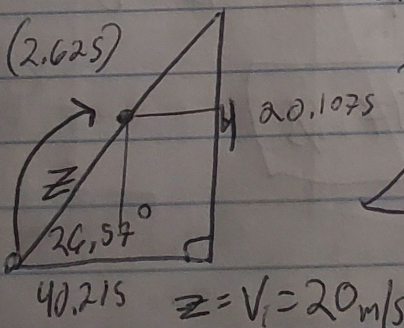 (2.625)
y 20.1075
Z
26.57°
40.215 Z = V₁ = 20 m/s